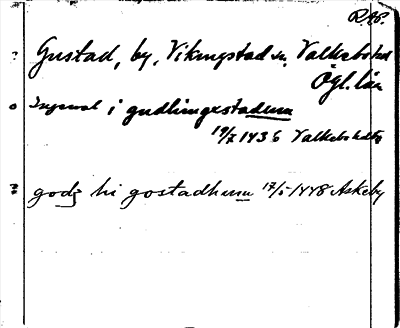 RAp.
? Gustad, by, Vikingstad sn, Valkebo hd
Ögl. län
o Ingeual i gudhingxstadum
19/7 1436 Valkebohdtg
? godz hi gostadhum 17/5 1448 Askeby